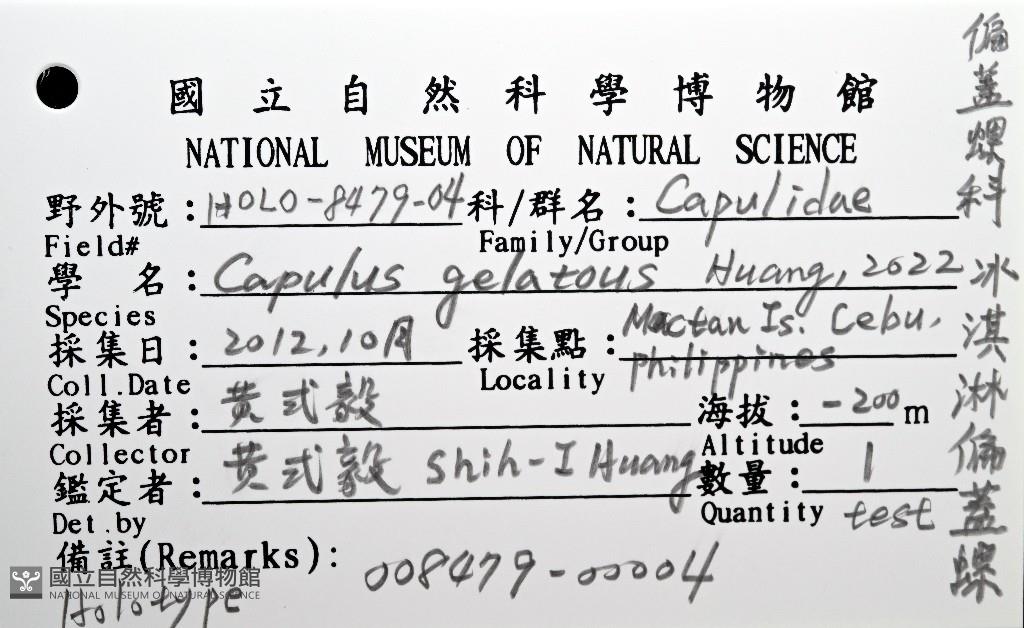 國立自然科學博物館
NATIONAL MUSEUM OF NATURAL SCIENCE
野外號：HOLO-8479-04 科/群名：Capulidae
Field# Family/Group
學 名：Capulus gelatous Huang, 2022
Species
採集日：2012,10月 採集點：Mactan Is. Cebu, philippines
Coll.Date Locality
採集者：黃式毅 海拔：-200m
Collector Altitude
鑑定者：黃式毅 Shih-I Huang 數量：1
Det.by Quantity test
備註(Remarks): 008479-00004
Holotype
國立自然科學博物館
NATIONAL MUSEUM OF NATURAL SCIENCE
偏蓋螺科 冰淇淋偏蓋螺